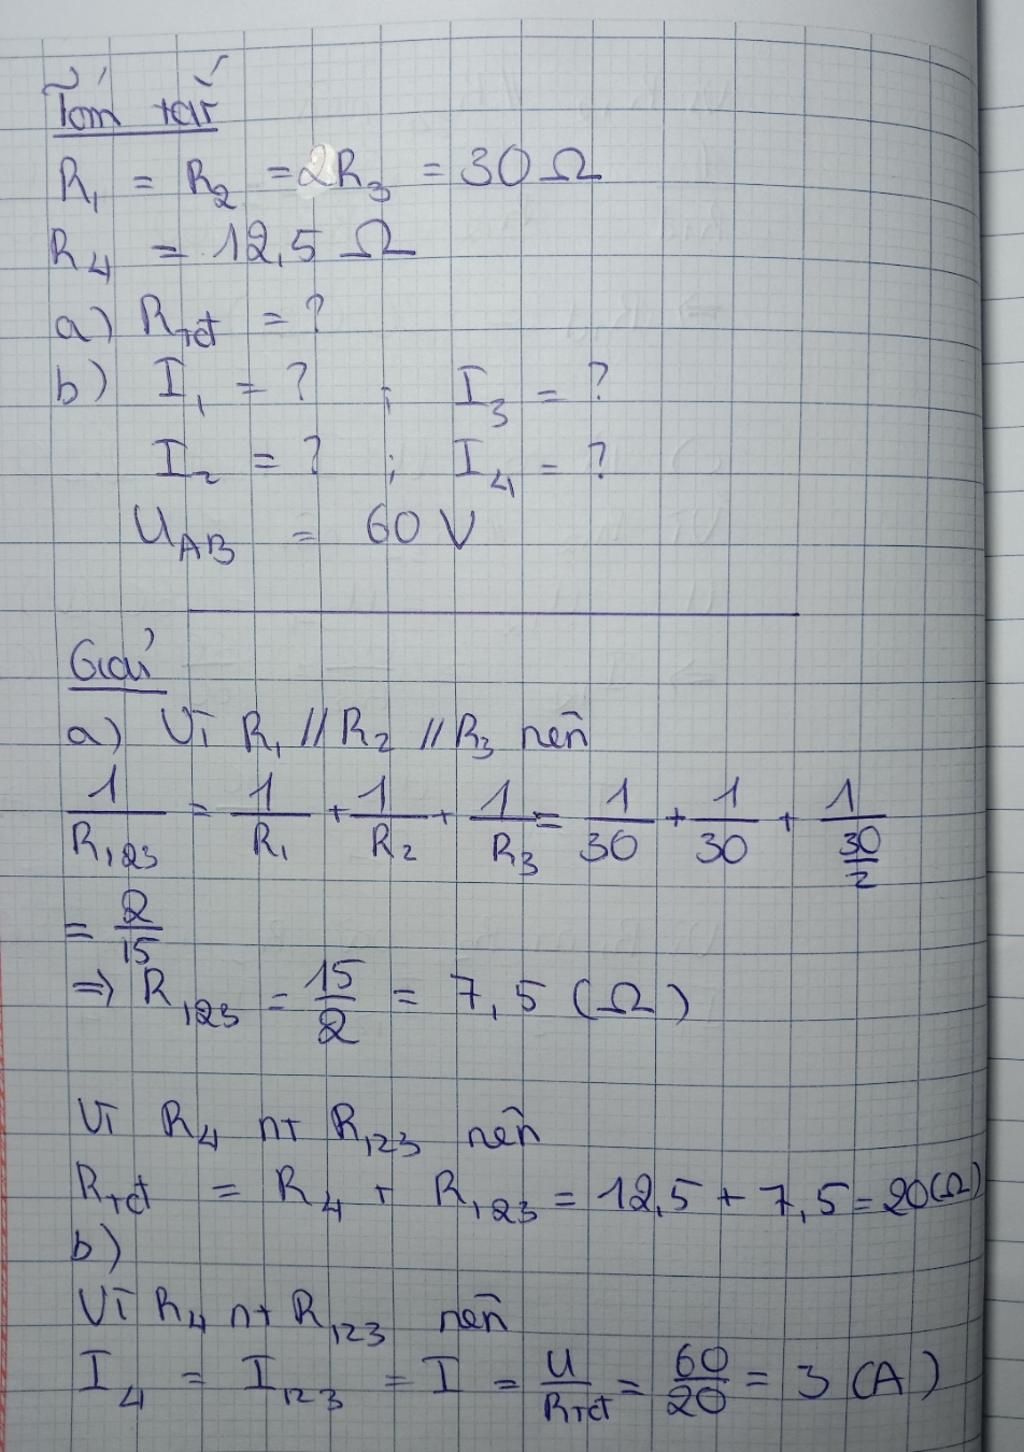 Tóm tắt
R₁ = R₂ = 2R₃ = 30 Ω
R₄ = 12,5 Ω
a) Rtđ = ?
b) I₁ = ? ; I₃ = ?
I₂ = ? ; I₄ = ?
U_AB = 60 V
Giải
a) Vì R₁ // R₂ // R₃ nên
1/R₁₂₃ = 1/R₁ + 1/R₂ + 1/R₃ = 1/30 + 1/30 + 1/(30/2)
= 2/15
⇒ R₁₂₃ = 15/2 = 7,5 (Ω)
Vì R₄ nt R₁₂₃ nên
Rtđ = R₄ + R₁₂₃ = 12,5 + 7,5 = 20 (Ω)
b)
Vì R₄ nt R₁₂₃ nên
I₄ = I₁₂₃ = I = U/Rtđ = 60/20 = 3 (A)